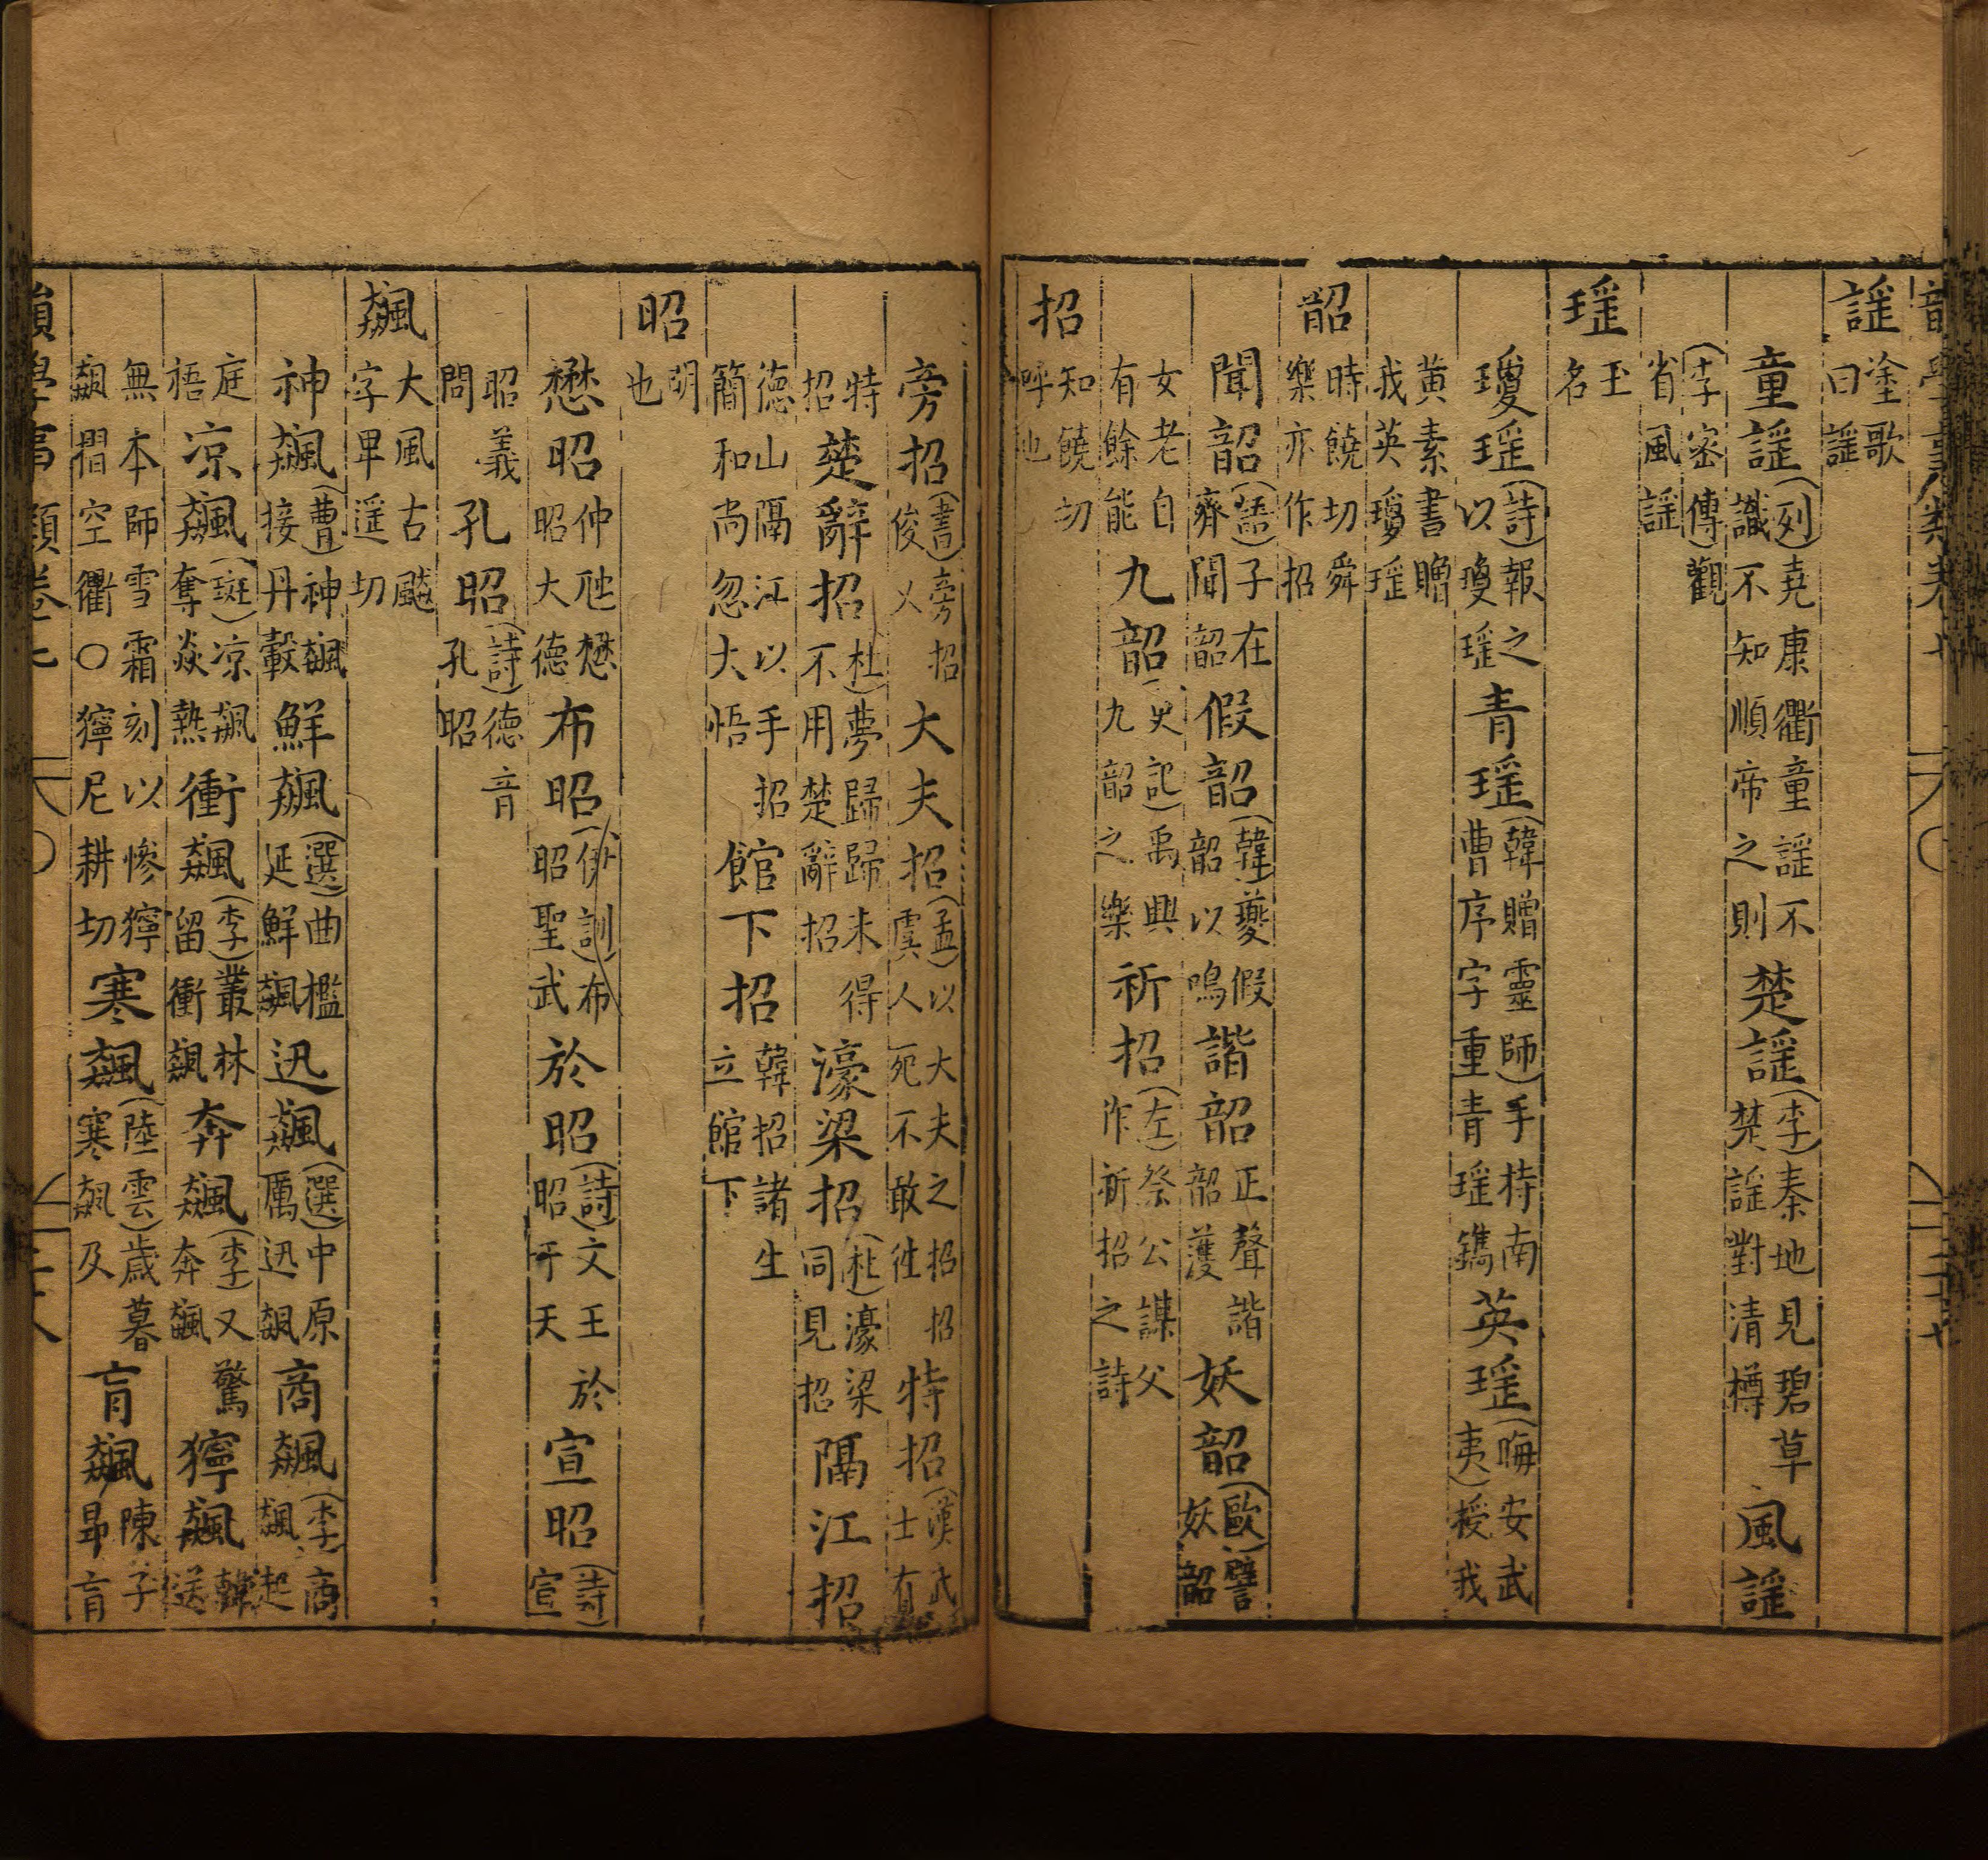 謡塗歌曰謡
童謡(列)堯康衢童謡不識不知順帝之則楚謡(李)秦地見碧草楚謡對清樽風謡
(李密傳)觀省風謡
瑶玉名
瓊瑶(詩)報之以瓊瑶青瑶(韓贈靈師)手持南曹序字重青瑶鐫英瑶(晦安武夷)授我
黄素書贈我英瓊瑶
韶時饒切舜樂亦作招
聞韶(語)子在齊聞韶假韶(韓)夔假韶以鳴諧韶正聲諧韶頀妖韶(歐)譬妖韶
女老自有餘能九韶(史記)禹興九韶之樂祈招(左)祭公謀父作祈招之詩
招知饒切呼也
旁招(書)旁招俊乂大夫招(孟)以大夫之招招虞人死不敢徃特招(漢武)士有
特招楚辭招(杜)夢歸歸未得不用楚辭招濠梁招(杜)濠梁同見招隔江招
德山隔江以手招簡和尚忽大悟館下招韓招諸生立館下
昭明也
懋昭仲虺懋昭大德布昭(伊訓)布昭聖武於昭(詩)文王於昭于天宣昭(詩)宣
昭義問孔昭(詩)德音孔昭
飆大風古飈字畢遥切
神飆(曹)神飆接丹轂鮮飆(選)曲檻延鮮飆迅飆(選)中原厲迅飆商飆(李)商飆起
庭梧凉飆(班)凉飆奪炎熱衝飆(李)叢林留衝飆奔飆(李)又驚奔飆獰飆韓送
無本師雪霜刻以慘獰飆搢空衢○獰尼耕切寒飆(陸雲)歳暮寒飆及盲飆陳子昻盲